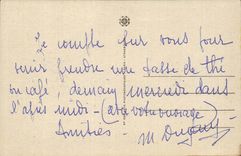 Je compte sur vous pour
venir prendre une tasse de thé
ou café, demain mercredi dans
l'après midi - (avec votre ouvrage)
Amitiés -
M